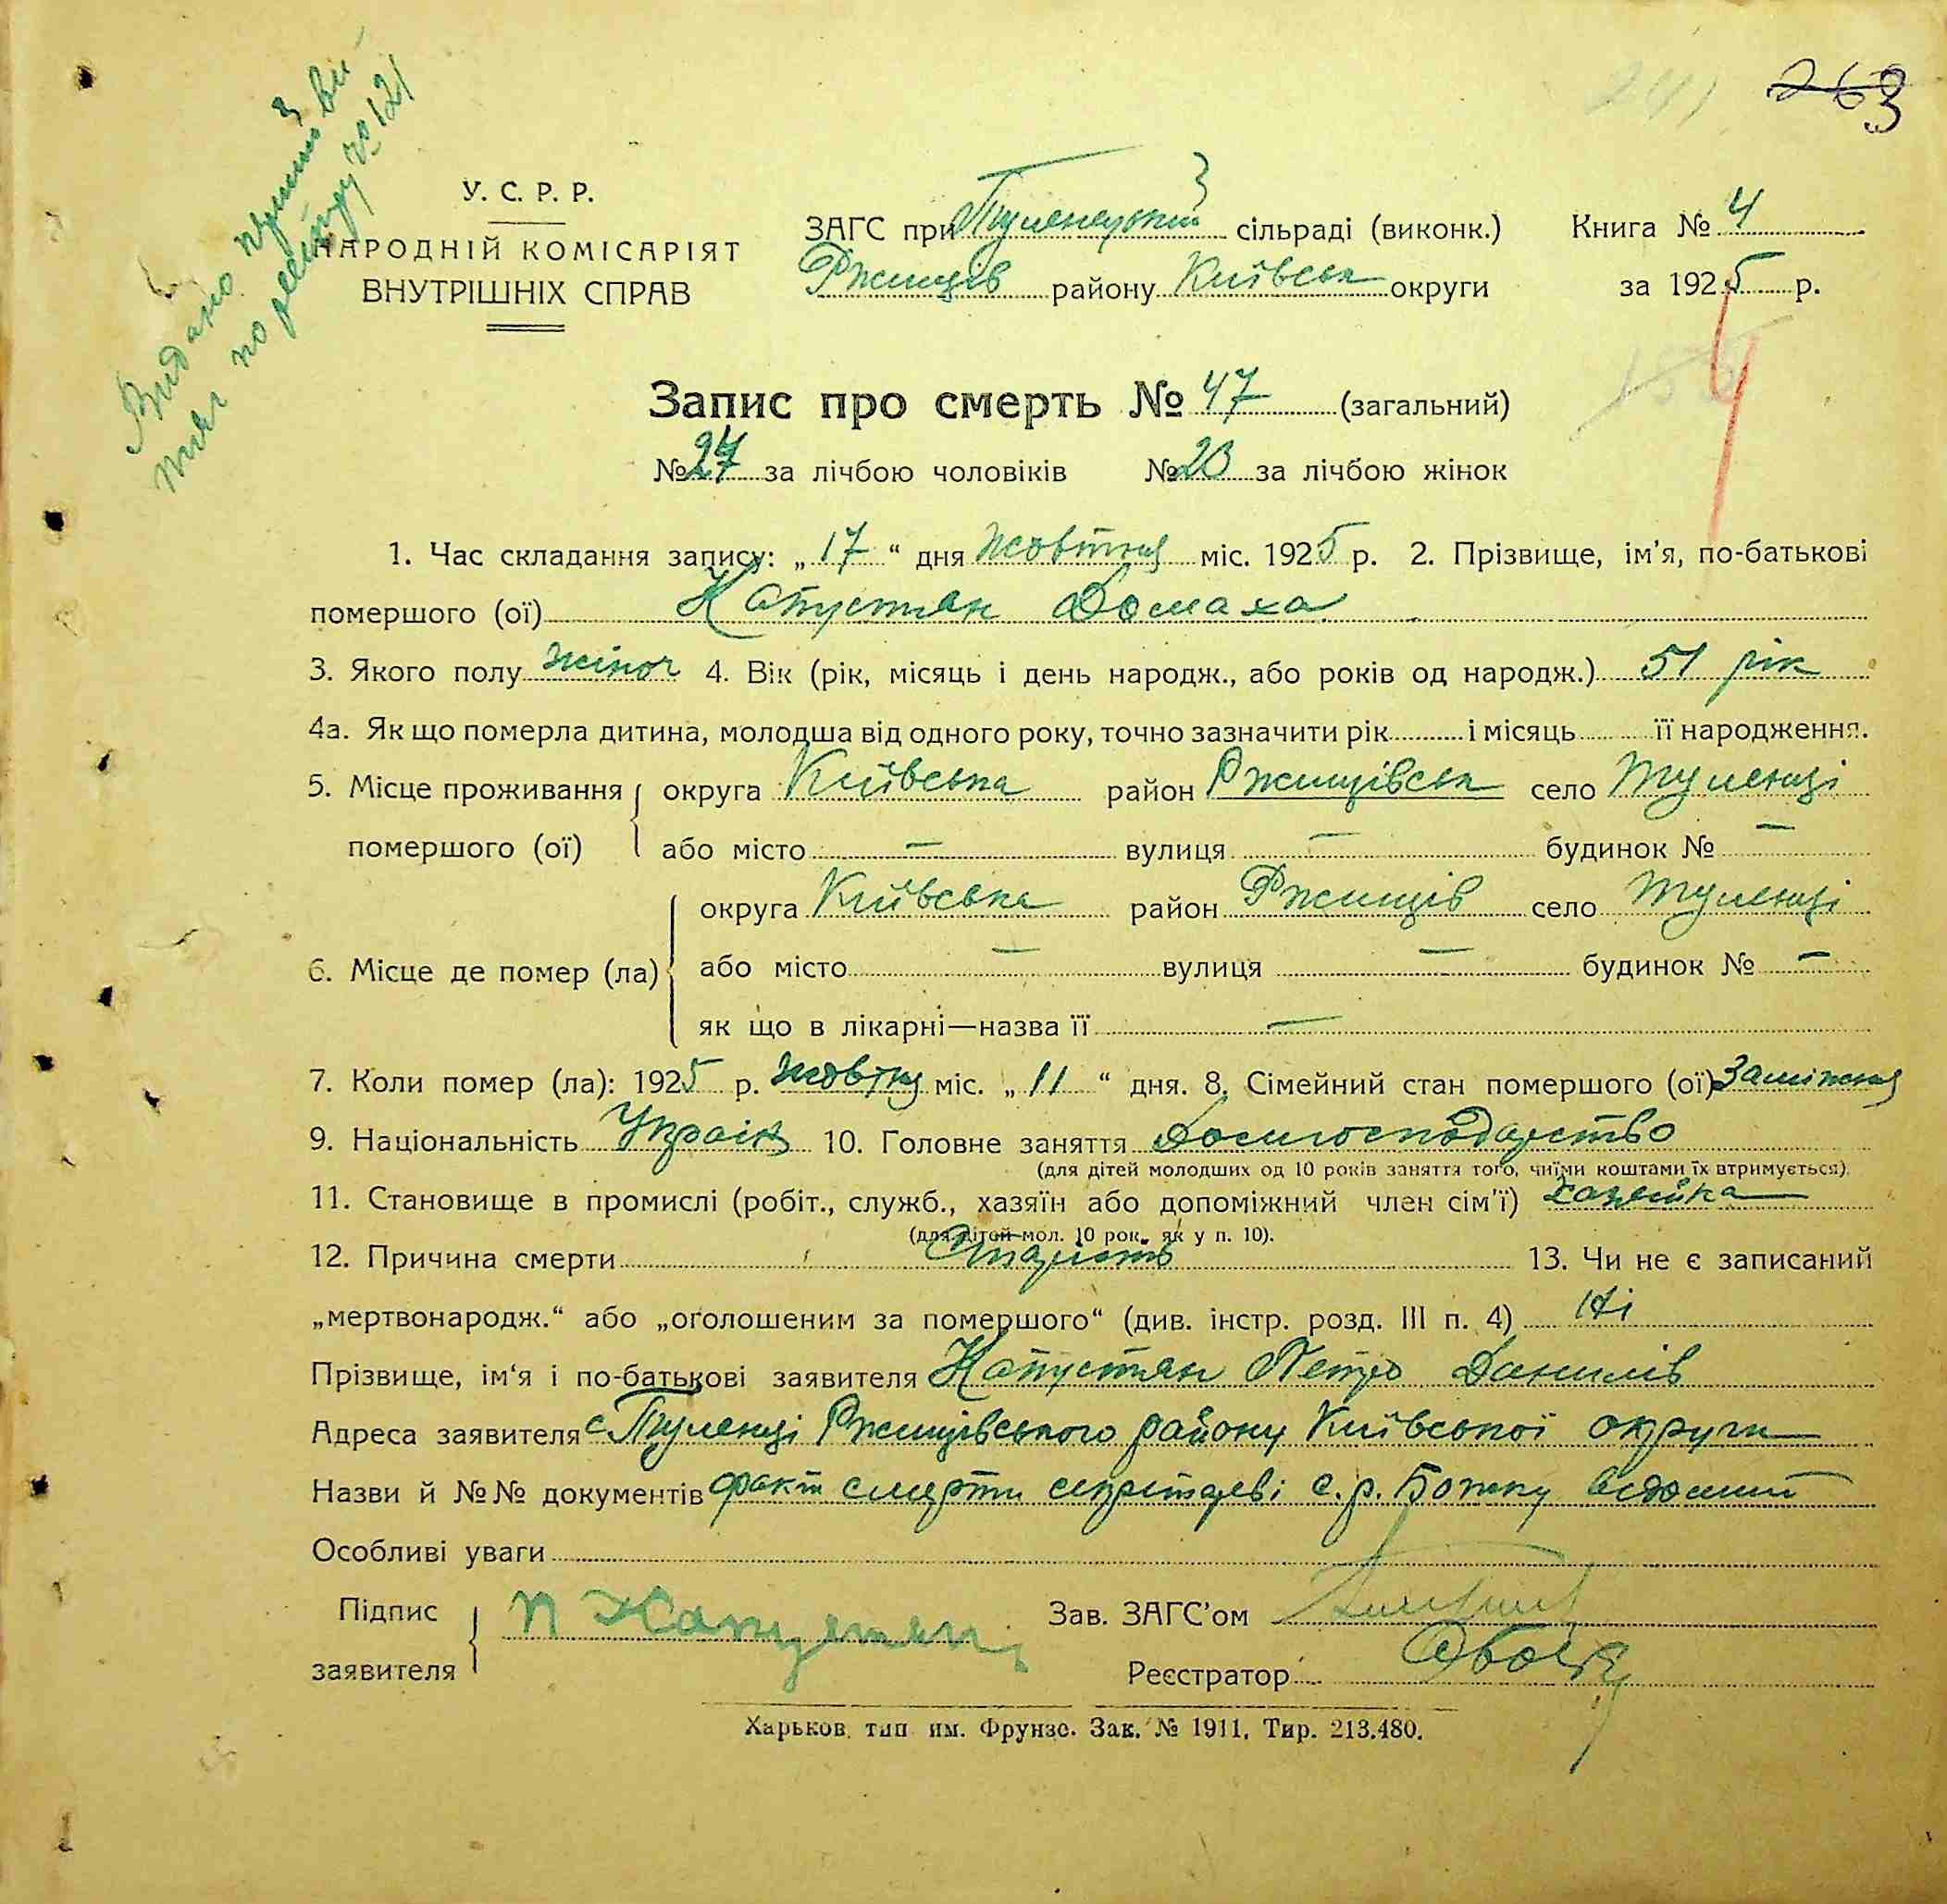 263
Видано
по реєстру № 121
У. С. Р. Р.
НАРОДНІЙ КОМІСАРІЯТ
ВНУТРІШНІХ СПРАВ
ЗАГС при Тулинецький сільраді (виконк.) Книга № 4
Ржищів району Київськ округи за 1925 р.
Запис про смерть № 47 (загальний)
№ 24 за лічбою чоловіків № 23 за лічбою жінок
1. Час складання запису: „17“ дня жовтня міс. 1925 р. 2. Прізвище, ім’я, по-батькові
помершого (ої) Капустян Домаха
3. Якого полу жіноч 4. Вік (рік, місяць і день народж., або років од народж.) 51 рік
4а. Як що померла дитина, молодша від одного року, точно зазначити рік і місяць її народження.
5. Місце проживання округа Київська район Ржищівськ село Тулинці
помершого (ої) або місто — вулиця — будинок № —
округа Київська район Ржищів село Тулинці
6. Місце де помер (ла) або місто — вулиця — будинок № —
як що в лікарні—назва її —
7. Коли помер (ла): 1925 р. жовтня міс. „11“ дня. 8. Сімейний стан помершого (ої) Заміжня
9. Національність Украін 10. Головне заняття Домгосподарство
(для дітей молодших од 10 років заняття того, чиїми коштами їх втримується).
11. Становище в промислі (робіт., служб., хазяїн або допоміжний член сім’ї) хазяйка
(для дітей мол. 10 рок., як у п. 10).
12. Причина смерти Старість 13. Чи не є записаний
„мертвонародж.“ або „оголошеним за помершого“ (див. інстр. розд. III п. 4) Ні
Прізвище, ім‘я і по-батькові заявителя Капустян Петро Данилів
Адреса заявителя с. Тулинці Ржищівського району Київської округи
Назви й №№ документів факт смерти секретареві с. р. Божку відомий
Особливі уваги
Підпис П Капустян Зав. ЗАГС’ом
заявителя Реєстратор
Харьков. тип им. Фрунзе. Зак. № 1911. Тир. 213.480.